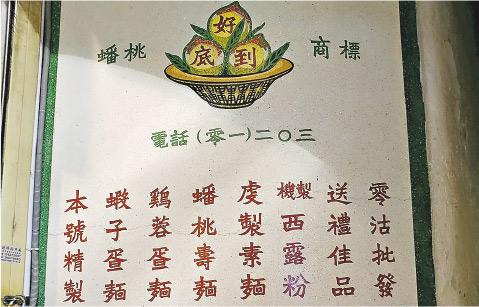 好
到底
蟠桃 商標
電話(零一)二〇三
本號精製
蝦子蛋麵
鷄蓉蛋麵
蟠桃壽麵
虔製素麵
機製西露粉
送禮佳品
零沽批發